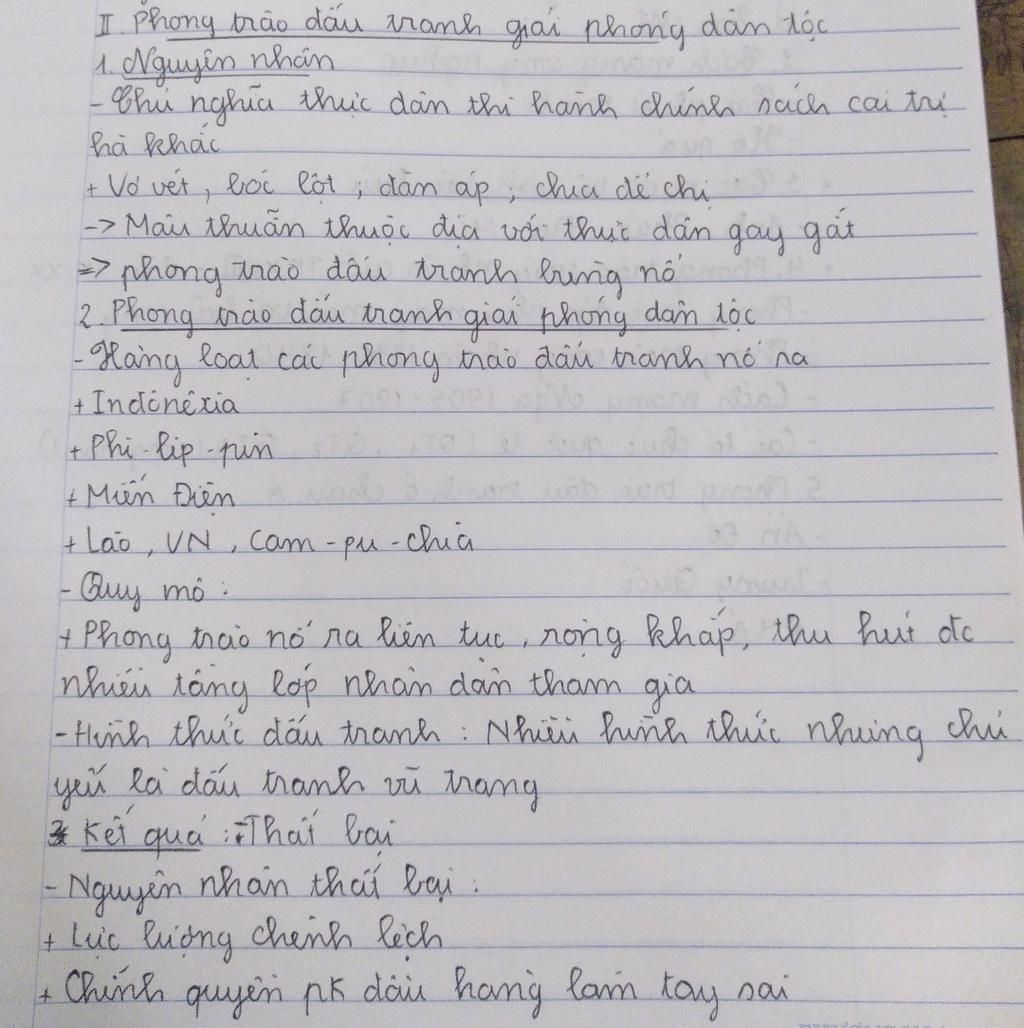 II. Phong trào đấu tranh giải phóng dân tộc
1. Nguyên nhân
- Chủ nghĩa thực dân thi hành chính sách cai trị
hà khắc
+ Vơ vét, bóc lột, đàn áp, chia để trị
-> Mâu thuẫn thuộc địa với thực dân gay gắt
=> phong trào đấu tranh bùng nổ
2. Phong trào đấu tranh giải phóng dân tộc
- Hàng loạt các phong trào đấu tranh nổ ra
+ Inđônêxia
+ Phi-lip-pin
+ Miến Điện
+ Lào, VN, Cam-pu-chia
- Quy mô:
+ Phong trào nổ ra liên tục, rộng khắp, thu hút đc
nhiều tầng lớp nhân dân tham gia
- Hình thức đấu tranh: Nhiều hình thức nhưng chủ
yếu là đấu tranh vũ trang
3. Kết quả: Thất bại
- Nguyên nhân thất bại:
+ Lực lượng chênh lệch
+ Chính quyền pk đầu hàng làm tay sai